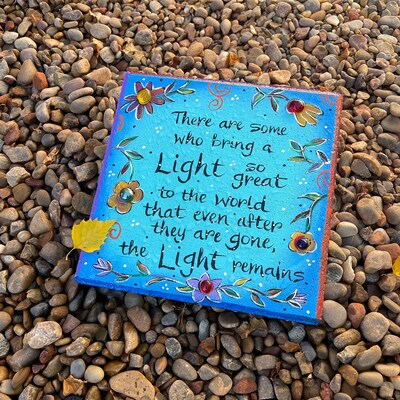 There are some
who bring a
Light so
great
to the world
that even after
they are gone,
the Light remains